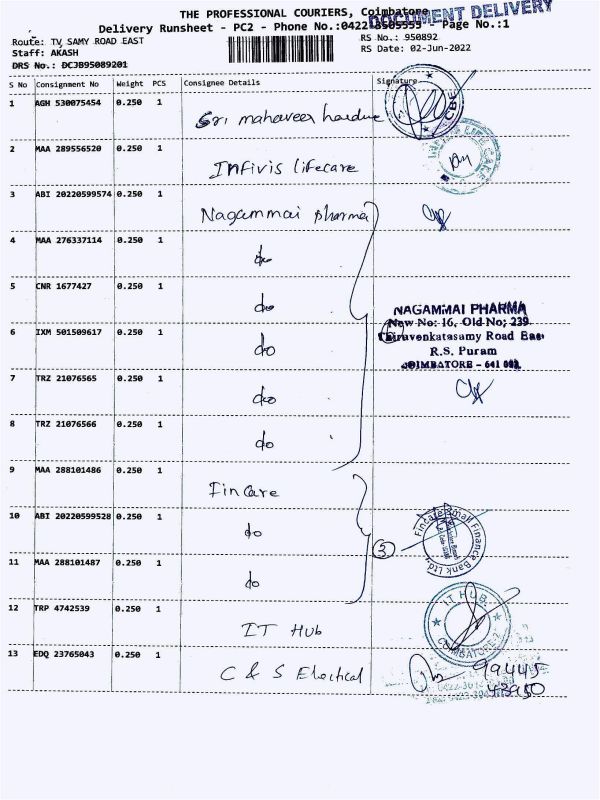 THE PROFESSIONAL COURIERS, Coimbatore
DOCUMENT DELIVERY
Delivery Runsheet - PC2 - Phone No.:0422-3505555 - Page No.:1
Route: TV SAMY ROAD EAST
RS No.: 950892
Staff: AKASH
RS Date: 02-Jun-2022
DRS No.: DCJB95089201
S No Consignment No Weight PCS Consignee Details Signature
1 AGH 530075454 0.250 1 Sri mahaveer hardwe
CBE
2 MAA 289556520 0.250 1 Infivis lifecare
3 ABI 20220599574 0.250 1 Nagammai pharma
4 MAA 276337114 0.250 1 do
5 CNR 1677427 0.250 1 do
NAGAMMAI PHARMA
New No: 16, Old No; 239
6 IXM 501509617 0.250 1 do
Thiruvenkatasamy Road East
R.S. Puram
COIMBATORE - 641 002.
7 TRZ 21076565 0.250 1 do
8 TRZ 21076566 0.250 1 do
9 MAA 288101486 0.250 1 Fincare
10 ABI 20220599528 0.250 1 do
Fincare Small Finance Bank Ltd.
11 MAA 288101487 0.250 1 do
3
12 TRP 4742539 0.250 1 IT Hub
IT HUB
COIMBATORE-2
13 EDQ 23765043 0.250 1 C & S Electical
99445
43950